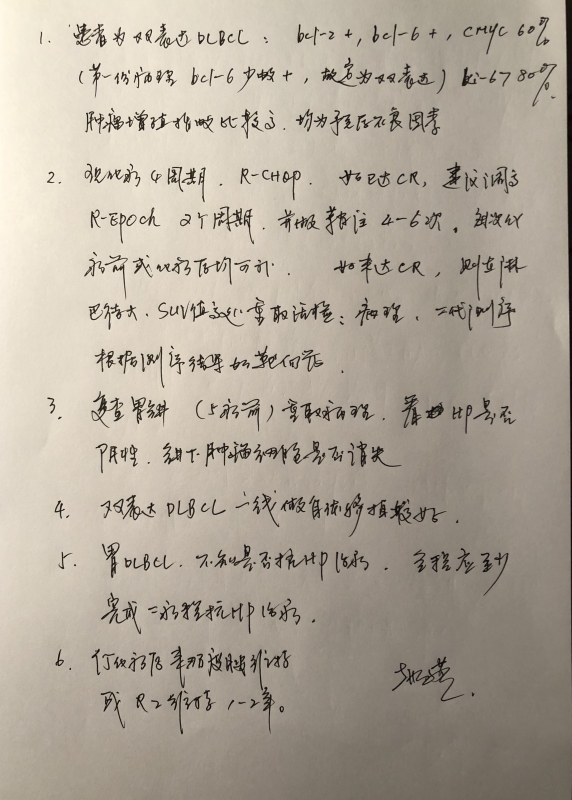 1. 患者为双表达DLBCL: bcl-2+, bcl-6+, CMYC 60%
(第一份病理 bcl-6 少数+, 故定为双表达) ki-67 80%.
肿瘤增殖指数比较高. 均为预后不良因素
2. 现化疗4周期. R-CHOP. 如已达CR, 建议调高
R-Epoch 2个周期. 并做鞘注 4-6次. 每次化
疗前或化疗后均可补. 如未达CR, 则在淋
巴结大、SUV值高处重取活检: 病理、二代测序
根据测序结果加靶向药.
3. 复查胃镜 (5疗前) 重取病理. 看 HP是否
阴性. 镜下肿瘤细胞是否消失
4. 双表达DLBCL 一线做自体移植较好.
5. 胃DLBCL. 不知是否抗HP治疗. 全程应至少
完成二疗程抗HP治疗.
6. 化疗后来那度胺维持
或 R2维持 1-2年。